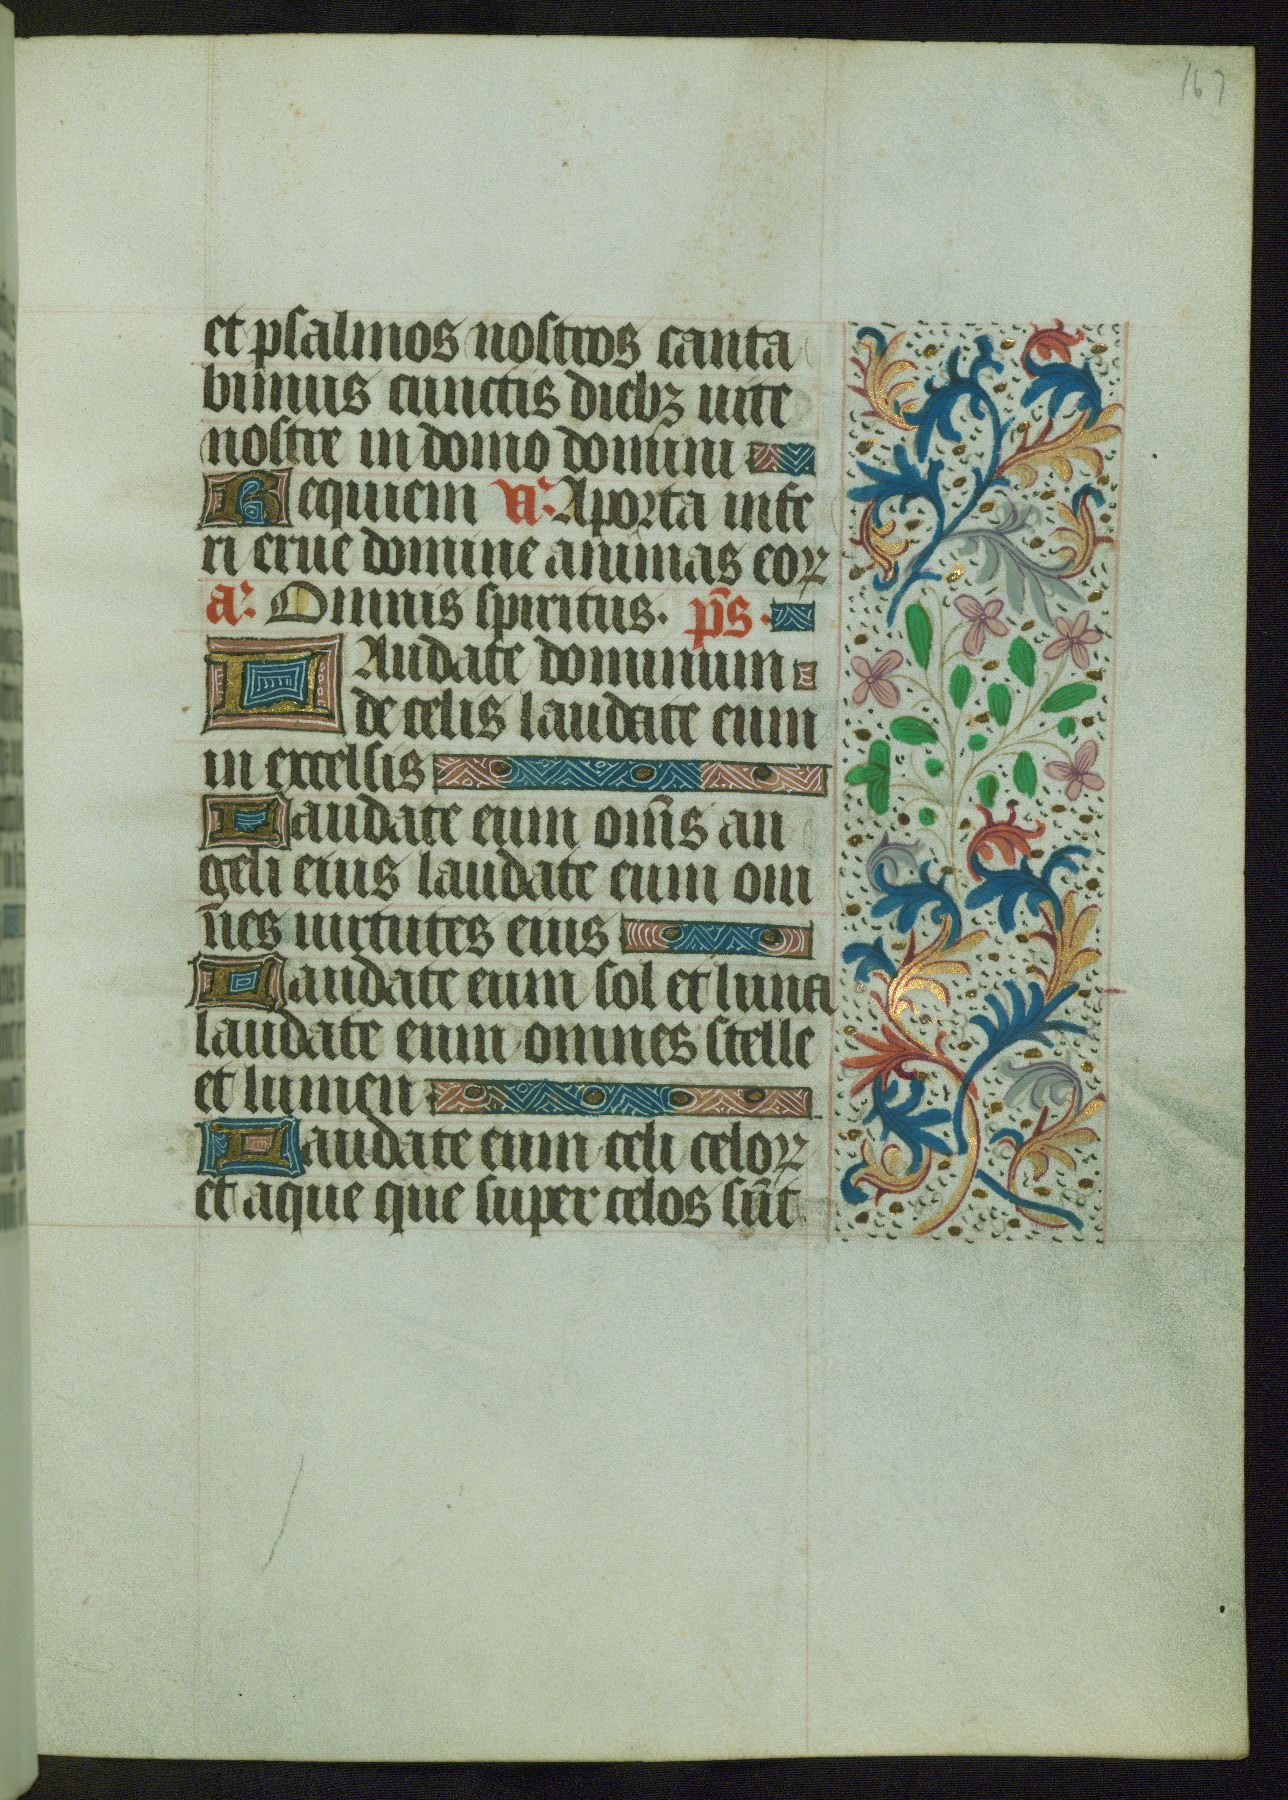 167
et psalmos nostros canta
bimus cunctis dieb₃ uite
nostre in domo domini
Requiem A᷒: A porta infe
ri erue domine animas eoꝝ
a: Omnis spiritus. p̄s.
Laudate dominum
de celis laudate eum
in excelsis
Laudate eum om̄s an
geli eius laudate eum om
n̄es uirtutes eius
Laudate eum sol et luna
laudate eum omnes stelle
et lumen
Laudate eum celi celoꝝ
et aque que super celos sūt